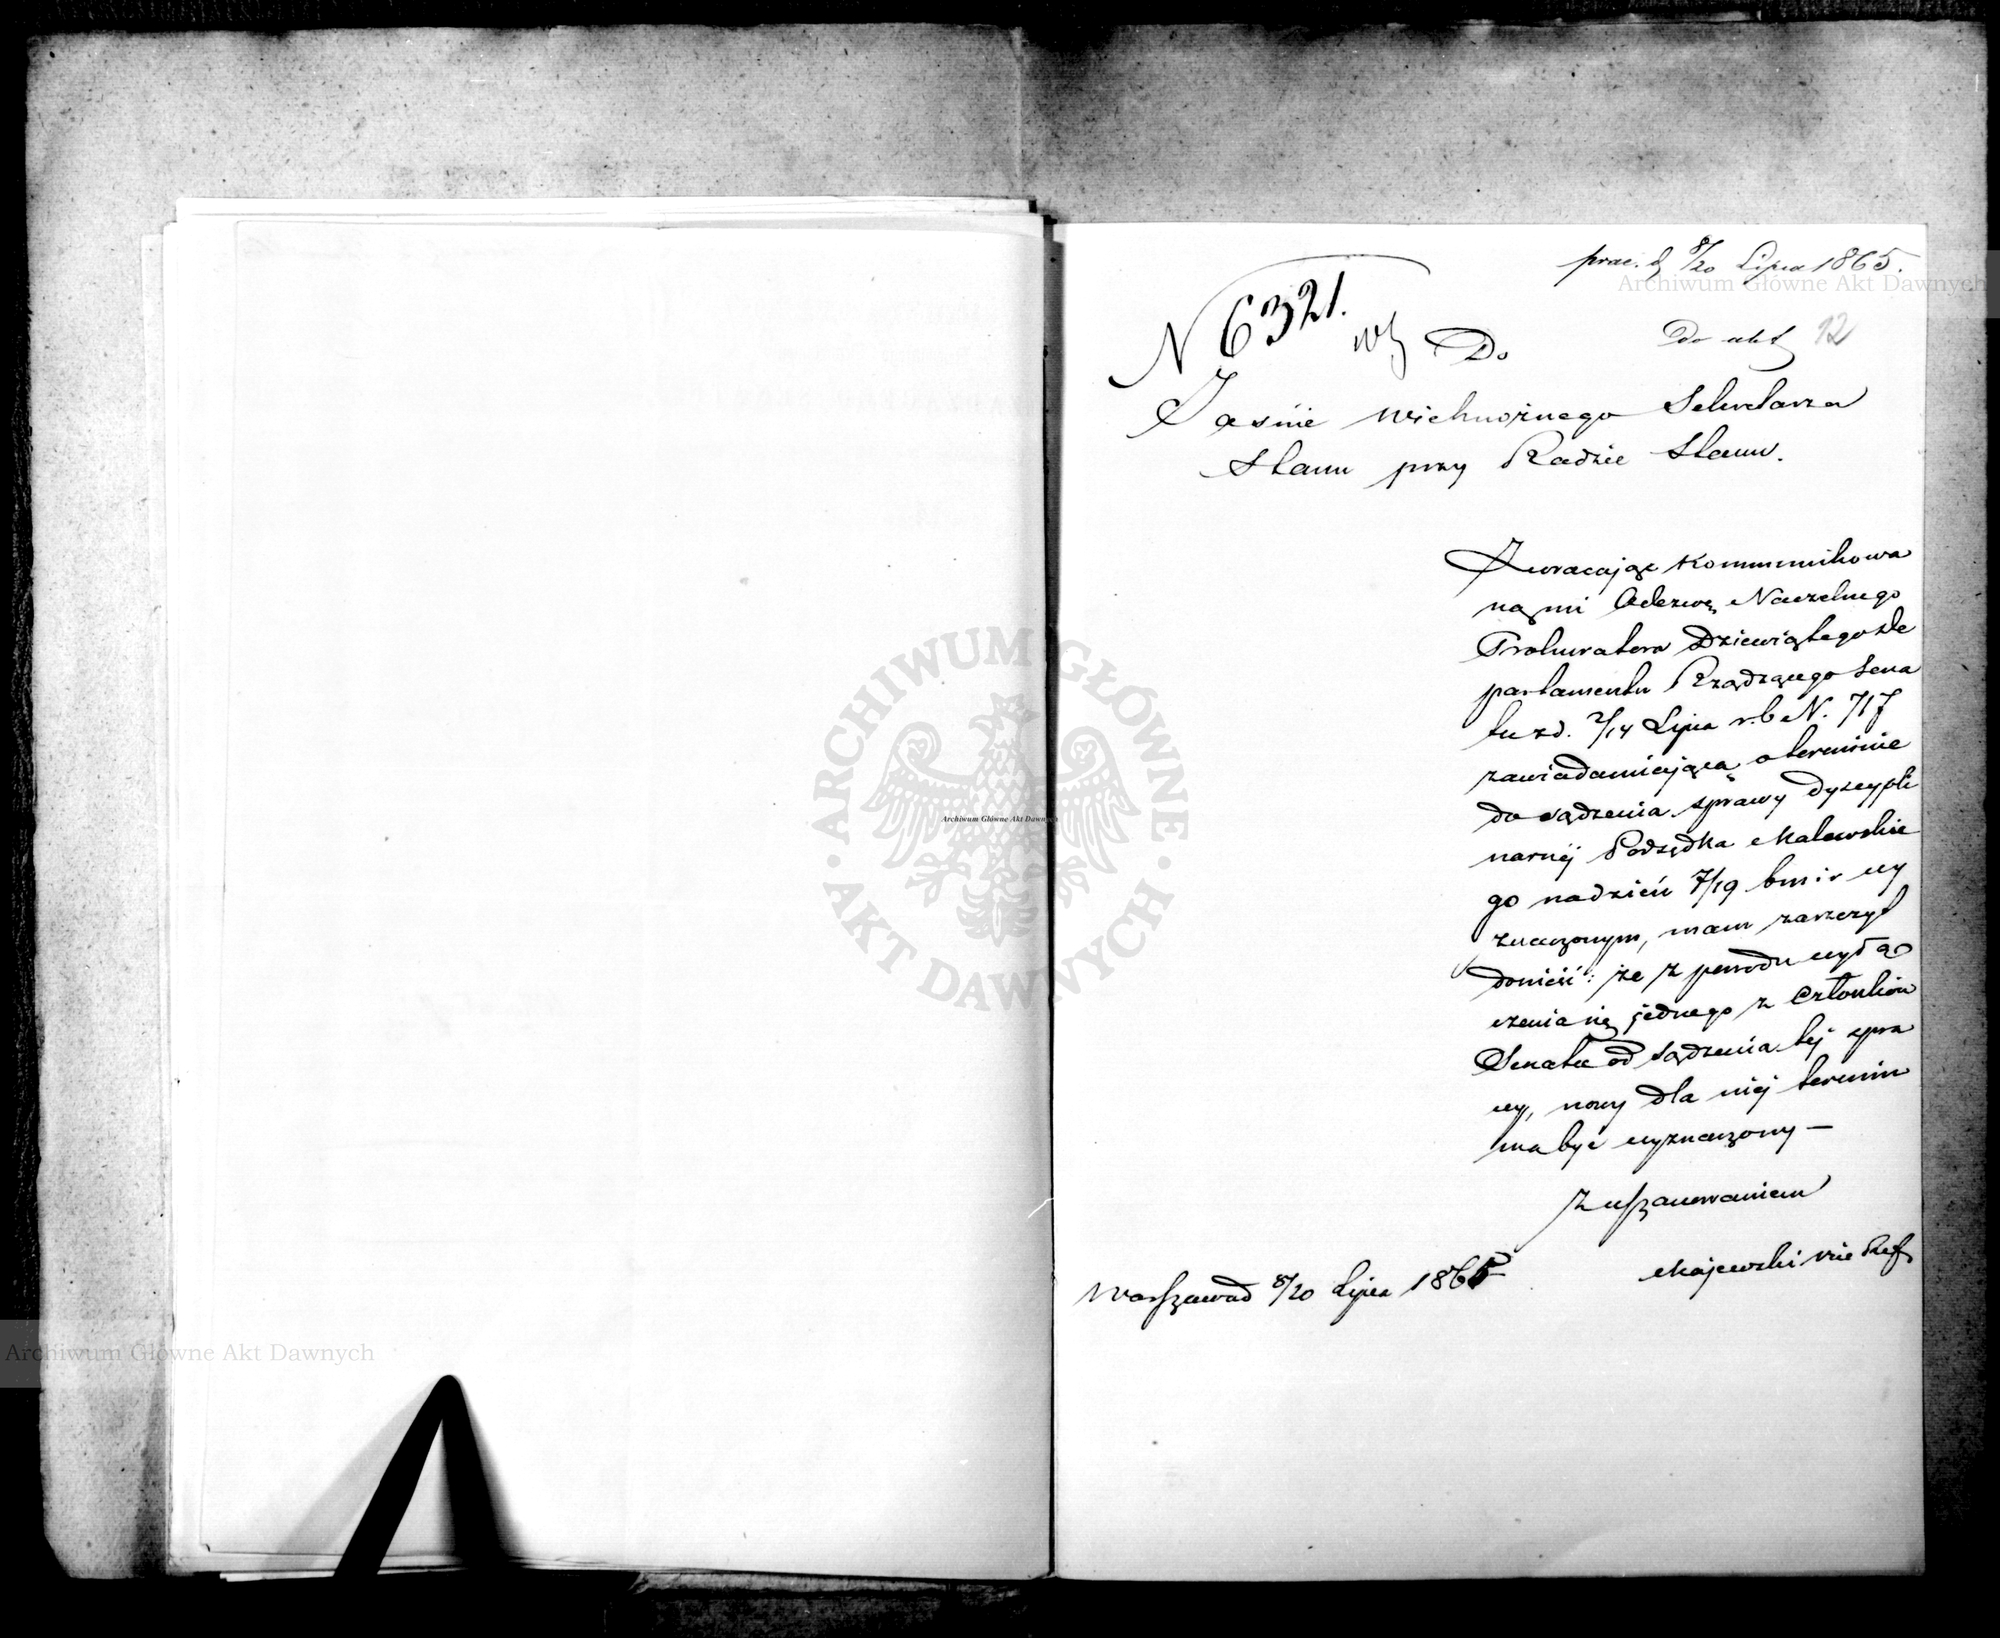 prae. d 8/20 Lipca 1865.
Archiwum Główne Akt Dawnych
N 6321.
Do akt 12
Do
Jaśnie Wielmożnego Sekretarza
Stanu przy Radzie Stanu.
Zwracając kommunikowa
ną mi Odezwę Naczelnego
Prokuratora Dziewiątego De
partamentu Rządzącego Sena
tu z d. 2/14 Lipca r. b N. 717
zawiadamiającą o terminie
do sądzenia sprawy dyscypli
narnéj Podsędka Malewskie
go na dzień 7/19 b m i r wy
znaczonym, mam zaszczyt
donieść: że z powodu wyłą
czenia się jednego z Członków
Senatu od sądzenia téj spra
wy, nowy dla niéj termin
ma być wyznaczony —
Z uszanowaniem
Majewski
Warszawa d 8/20 Lipca 1865
ARCHIWUM GŁÓWNE
AKT DAWNYCH
Archiwum Główne Akt Dawnych
Archiwum Główne Akt Dawnych